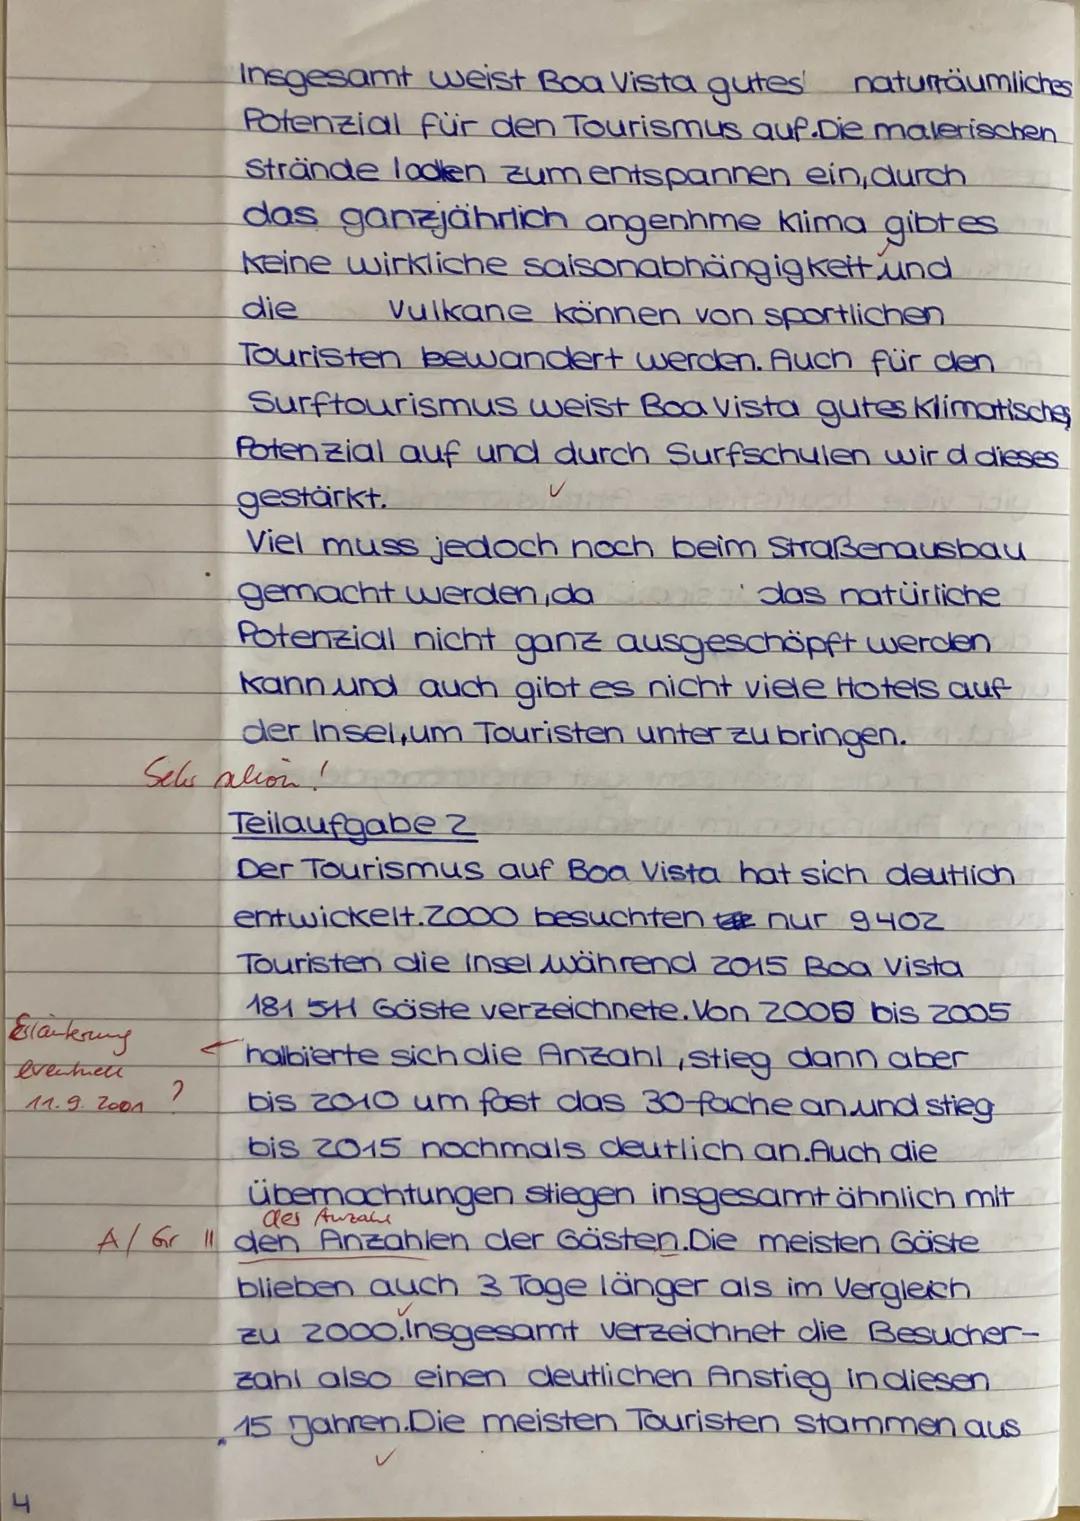 Insgesamt weist Boa Vista gutes naturräumliches
Potenzial für den Tourismus auf. Die malerischen
Strände laden zum entspannen ein, durch
das ganzjährlich angenhme Klima gibt es
keine wirkliche saisonabhängigkeit und
die Vulkane können von sportlichen
Touristen bewandert werden. Auch für den
Surftourismus weist Boa Vista gutes klimatisches
Potenzial auf und durch Surfschulen wird dieses
gestärkt.
Viel muss jedoch noch beim Straßenausbau
gemacht werden, da das natürliche
Potenzial nicht ganz ausgeschöpft werden
kann und auch gibt es nicht viele Hotels auf
der Insel, um Touristen unterzubringen.
Sehr schön!
Teilaufgabe 2
Der Tourismus auf Boa Vista hat sich deutlich
entwickelt. 2000 besuchten nur 9402
Touristen die Insel während 2015 Boa Vista
181 511 Gäste verzeichnete. Von 2000 bis 2005
Erläuterung
eventuell
11.9.2001 ?
halbierte sich die Anzahl, stieg dann aber
bis 2010 um fast das 30-fache an und stieg
bis 2015 nochmals deutlich an. Auch die
Übernachtungen stiegen insgesamt ähnlich mit
der Anzahl
A / Gr II den Anzahlen der Gästen. Die meisten Gäste
blieben auch 3 Tage länger als im Vergleich
zu 2000. Insgesamt verzeichnet die Besucher-
zahl also einen deutlichen Anstieg in diesen
15 Jahren. Die meisten Touristen stammen aus
4